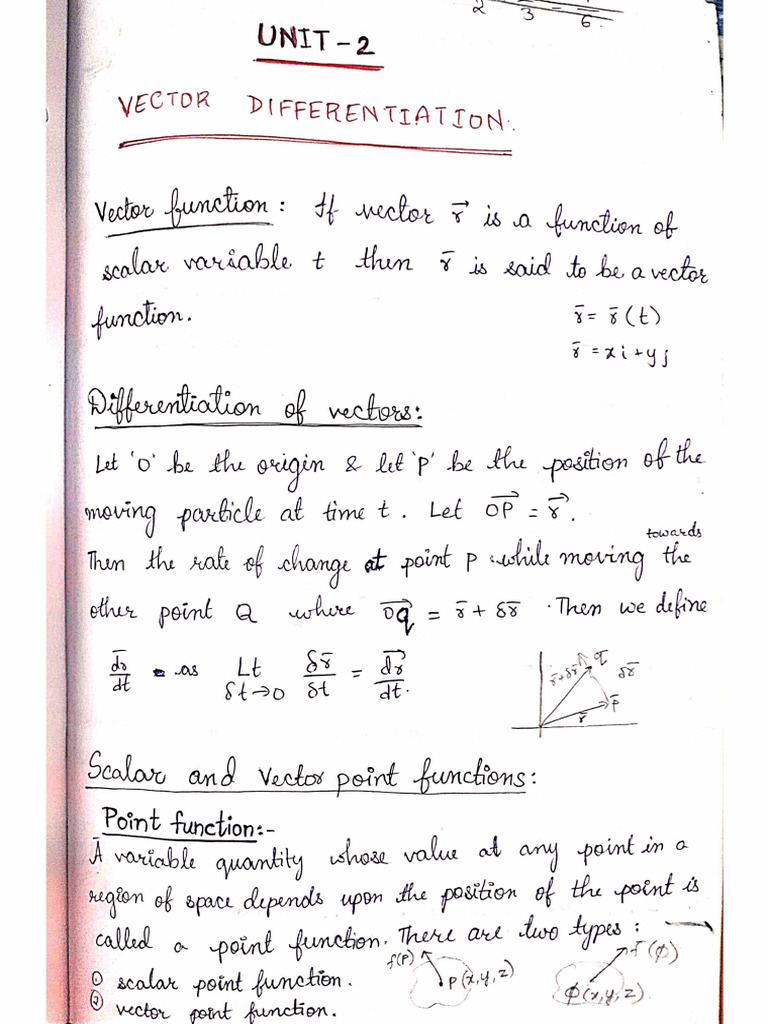 2 3 6
UNIT-2
VECTOR DIFFERENTIATION.
Vector function: If vector r⃗ is a function of
scalar variable t then r̄ is said to be a vector
function.
r̄ = r̄(t)
r̄ = xi+yj
Differentiation of vectors:
Let 'O' be the origin & let 'P' be the position of the
moving particle at time t. Let OP⃗ = r⃗.
towards
Then the rate of change at point P while moving the
other point Q where OQ⃗ = r̄ + δr̄. Then we define
dr̄/dt = as Lt δt→0 δr̄/δt = dr⃗/dt.
r̄+δr̄ q̄ δr̄
p̄
r̄
Scalar and Vector point functions:
Point function:-
A variable quantity whose value at any point in a
region of space depends upon the position of the point is
called a point function. There are two types: →
① scalar point function. f(P) P(x,y,z) f̄(ϕ) ϕ(x,y,z).
② vector point function.